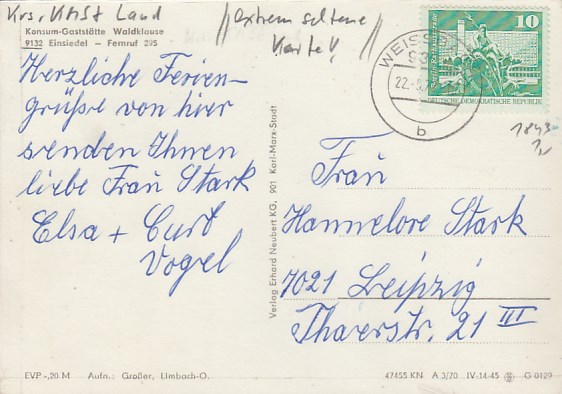 Krs. KMSt Land
//extrem seltene
Karte!//
Konsum-Gaststätte Waldklause
9132 Einsiedel — Fernruf 295
Herzliche Ferien-
grüße von hier
senden Ihnen
liebe Frau Stark
Elsa + Curt
Vogel
10
DEUTSCHE DEMOKRATISCHE REPUBLIK
WEISS
22.-5.7
b
1843
Frau
Hannelore Stark
7021 Leipzig
Thaerstr. 21 III
Verlag Erhard Neubert KG, 901 Karl-Marx-Stadt
EVP -,20 M Aufn.: Großer, Limbach-O.
47455 KN A 3/70 IV-14-45 G 0129